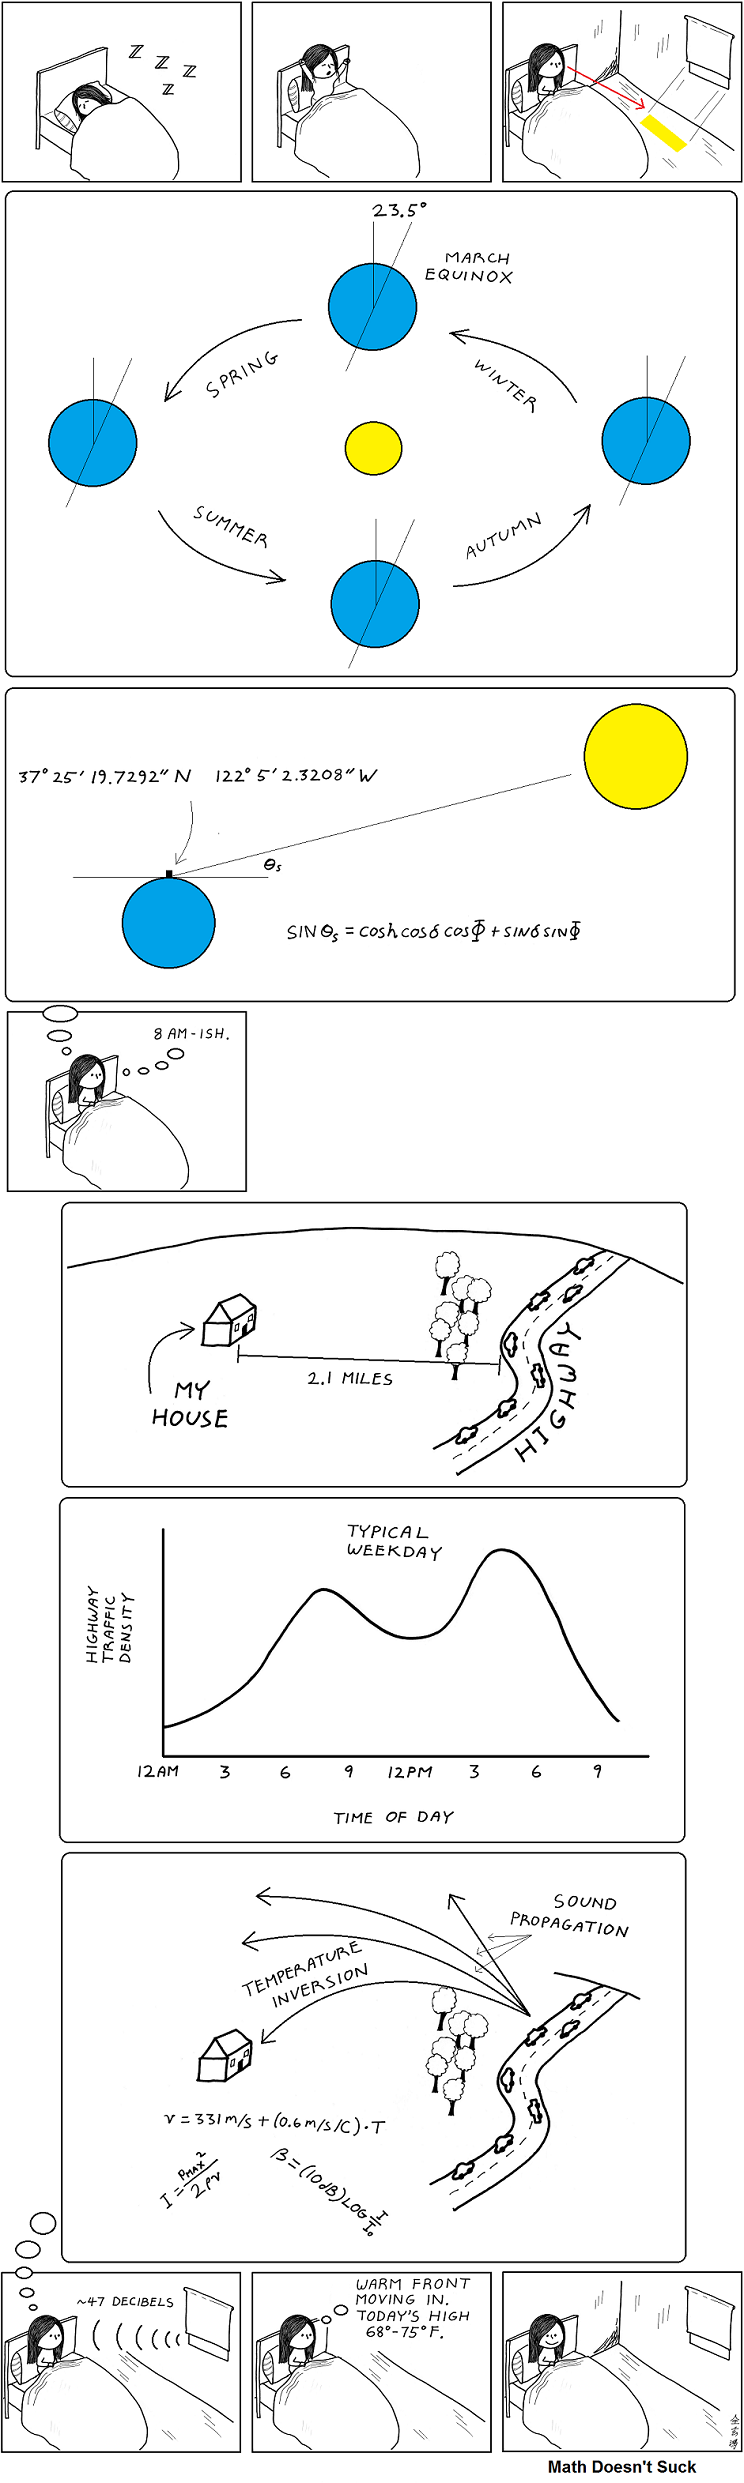 Z Z Z
Z
23.5°
MARCH
EQUINOX
SPRING
WINTER
SUMMER
AUTUMN
37° 25' 19.7292" N 122° 5' 2.3208" W
θs
SIN θs = cosh cosδ cosΦ + SINδ SINΦ
8 AM-ISH.
2.1 MILES
MY
HOUSE
HIGHWAY
TYPICAL
WEEKDAY
HIGHWAY
TRAFFIC
DENSITY
12AM 3 6 9 12PM 3 6 9
TIME OF DAY
SOUND
PROPAGATION
TEMPERATURE
INVERSION
v = 331 m/s + (0.6 m/s/C)·T
I = PMAX² / 2ρv
β = (10dB) LOG I/I₀
~47 DECIBELS
WARM FRONT
MOVING IN.
TODAY'S HIGH
68°-75°F.
Math Doesn't Suck